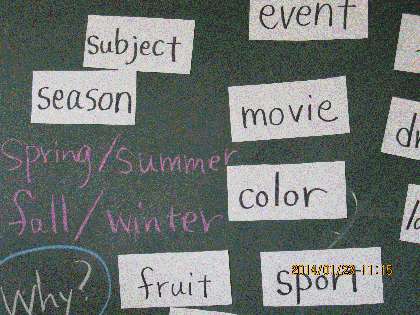 event
subject
season
movie
spring/summer
color
fall/winter
Why?
fruit
sport
2014/01/23 11:15